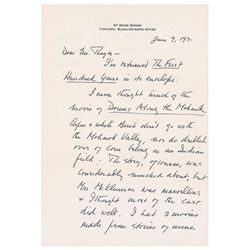 27 RIVER STREET
CONCORD, MASSACHUSETTS 01742
June 9, 1971
Dear Mr. Thayer –
I've returned The First
Hundred Years in its envelope.
I never thought much of the
movie of Drums Along the Mohawk
and white Birch don't go with
the Mohawk Valley, nor do drilled
rows of corn belong in an Indian
field. The story, of course, was
considerably mucked about, but
Mrs McKlennar was marvellous
& I thought most of the cast
did well. I had 3 movies
made from stories of mine